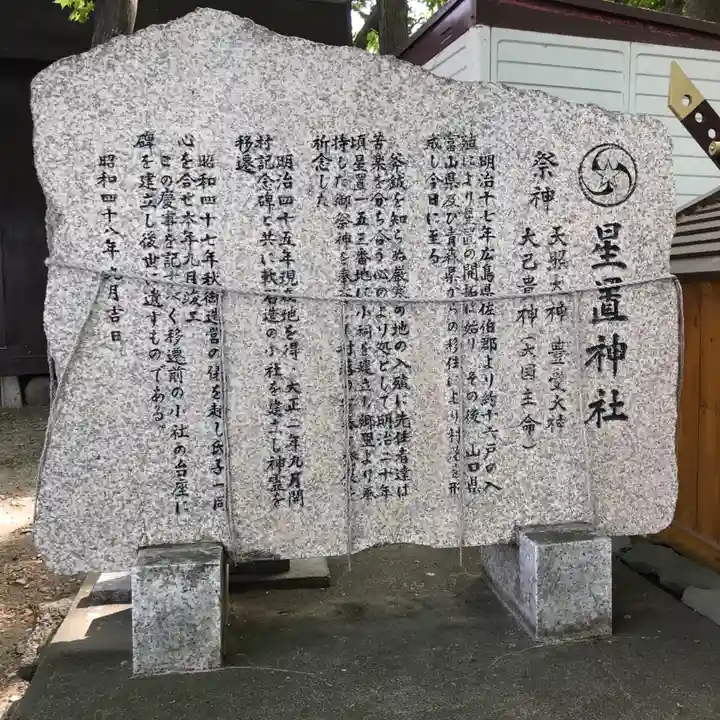 星置神社
祭神 天照大神 豊受大神
大己貴神(大国主命)
明治十七年広島県佐伯郡より約十六戸の入
殖により星置の開拓は始り その後 山口県
富山県及び青森県からの移住により村落を形
成し今日に至る
斧鉞を知らぬ厳寒の地の入殖に先住者達は
苦楽を分ち合う心のより処として明治二十年
頃星置一五三番地に小祠を建立し郷里より奉
持した御祭神を奉
祈念した
明治四十五年現在地を得 大正二年九月開
村記念碑と共に軟石造の小社を建立し神霊を
移遷
昭和四十七年秋御造営の儀を起し氏子一同
心を合せ本年九月竣工
この慶事を記すべく移遷前の小社の台座に
碑を建立し後世に遺すものである
昭和四十八年九月吉日